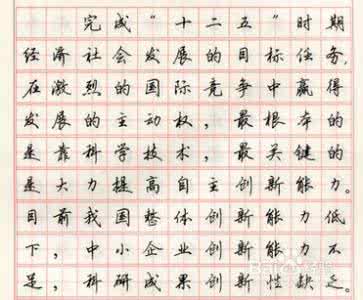 完成“十二五”时期
经济社会发展的目标任务,
在激烈的国际竞争中赢得
发展的主动权，最根本的
是靠科学技术，最关键的
是大力提高自主创新能力。
目前我国整体创新能力低
下，中小企业创新能力不
足，科研成果创新性缺乏。